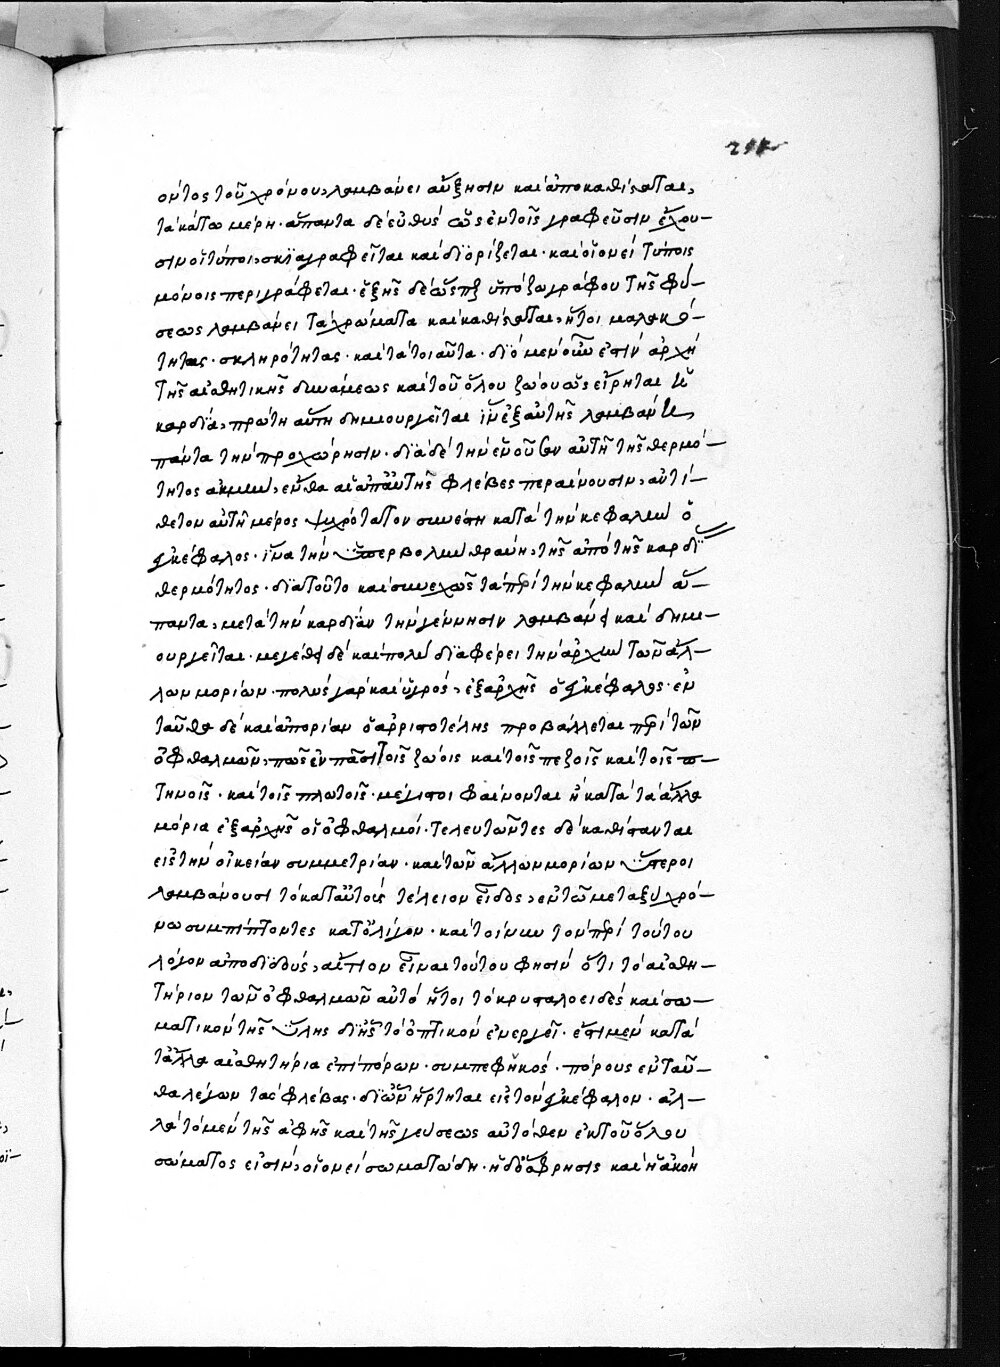 οντος τοῦ χρόνου, λαμβάνει αὔξησιν καὶ ἀποκαθίσταται,
τὰ κάτω μέρη· ἅπαντα δὲ εὐθὺς ὡς ἐν τοῖς γραφεῦσιν ἔχου–
σιν οἱ τύποι, σκϊαγραφεῖται καὶ δϊορίζεται· καὶ οἱονεὶ τύποις
μόνοις περιγράφεται· ἑξῆς δὲ ὥσπερ ὑπὸ ζωγράφου τῆς φύ–
σεως λαμβάνει τὰ χρώματα καὶ καθίσταται, ἤτοι μαλακό–
τητας· σκληρότητας· καὶ τὰ τοιαῦτα· δϊὸ μὲν οὖν ἐστὶν ἀρχὴ
τῆς αἰσθητικῆς δυνάμεως καὶ τοῦ ὅλου ζώου ὡς εἴρηται ἡ
καρδΐα, πρώτη αὕτη δημιουργεῖται ἵν' ἐξ αὐτῆς λαμβάνῃ
πάντα τὴν προχώρησιν· δϊὰ δὲ τὴν ἐνοῦσαν αὐτῇ τῆς θερμό–
τητος ἀκμὴν, ἔνθα αἱ ἀπ' αὐτῆς φλέβες περαίνουσιν, ἀντί–
θετον αὐτῇ μέρος ψυχρότατον συνέστη κατὰ τὴν κεφαλὴν ὁ
ἐγκέφαλος· ἵνα τὴν ὑπερβολὴν θραύῃ, τῆς ἀπὸ τῆς καρδΐας
θερμότητος· δϊὰ τοῦτο καὶ συνεχῶς τὰ περὶ τὴν κεφαλὴν ἅ–
παντα, μετὰ τὴν καρδΐαν τὴν γέννησιν λαμβάνει καὶ δημι–
ουργεῖται· μεγέθει δὲ καὶ πολὺ δϊαφέρει τὴν ἀρχὴν τῶν ἀλ–
λων μορίων· πολὺς γὰρ καὶ ὑγρός, ἐξ ἀρχῆς ὁ ἐγκέφαλος· ἐν
ταῦθα δὲ καὶ ἀπορίαν ὁ ἀριστοτέλης προβάλλεται περὶ τῶν
ὀφθαλμῶν, πῶς ἐν πᾶσι τοῖς ζώοις καὶ τοῖς πεζοῖς καὶ τοῖς π–
τηνοῖς· καὶ τοῖς πλωτοῖς· μέγιστοι φαίνονται ἢ κατὰ τὰ ἄλλα
μόρια ἐξ ἀρχῆς οἱ ὀφθαλμοί· τελευτῶντες δὲ καθίστανται
εἰς τὴν οἰκείαν συμμετρίαν· καὶ τῶν ἄλλων μορίων ὕστεροι
λαμβάνουσι τὸ κατ' αὐτοὺς τέλειον εἶδος, ἐν τῷ μεταξὺ χρό–
νω συμπίπτοντες κατ' ὀλίγον· καὶ τοίνυν τὸν περὶ τούτου
λόγον ἀποδϊδοὺς, αἴτιον εἶναι τούτου φησὶν ὅτι τὸ αἰσθη–
τήριον τῶν ὀφθαλμῶν αὐτὸ ἤτοι τὸ κρυσταλοειδὲς καὶ σω–
ματικὸν τῆς ὕλης δϊ' ἧς τὸ ὀπτικὸν ἐνεργεῖ· ἔστι μὲν κατὰ
τἄλλα αἰσθητήρια ἐπὶ πόρων· συμπεφηκός· πόρους ἐνταῦ–
θα λέγων τὰς φλέβας· δϊ' ὧν ἤρτηται εἰς τὸν ἐγκέφαλον· ἀλ–
λὰ τὸ μὲν τῆς ἁφῆς καὶ τῆς γεύσεως αὐτόθεν ἐκ τοῦ ὅλου
σώματος εἰσὶν, οἱονεὶ σωματώδη· ἡ δ' ὄσφρησις καὶ ἡ ἀκοὴ